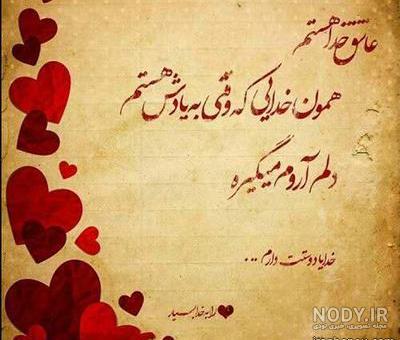 عاشق خدا هستم
همون خدایی که وقتی به یادش هستم
دلم آروم میگیره
خدایا دوستت دارم ...
را به خدا بسپار
NODY.IR
مجله تصویری، خبری نودی